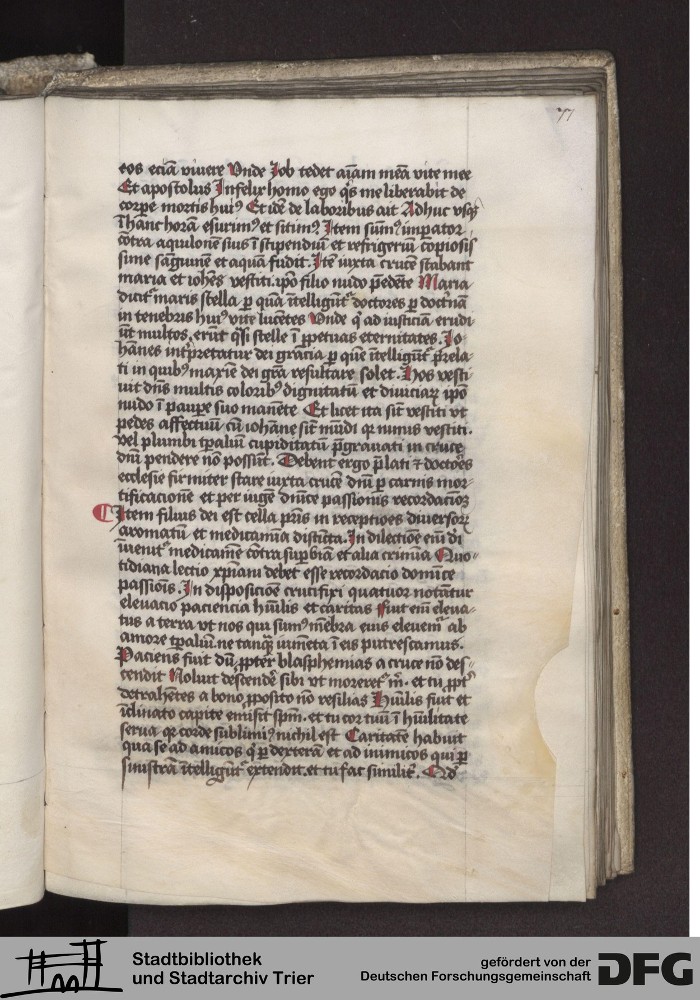 77
eos eciā viuere Vnde Job tedet aīam meā vite mee
Et apostolus Infelix homo ego q̄s me liberabit de
corpe mortis huiꝰ Et idē de laboribus ait Adhuc vsqꝫ
ī hanc horā esurimꝰ et sitimꝰ. Item sūmꝰ imꝑator
cōtra aquilonē suis ī stipendiū et refrigeriū copiosis
sime sangwinē et aquā fudit. Itē iuxta crucē stabant
maria et iohēs vestiti. ip̄o filio nudo pēdēte Maria
dicit᷑ maris stella ꝑ quā ītelligūt᷑ doctores ꝑ doctnā
in tenebris huiꝰ vite lucētes Vnde q̄ ad iusticiā erudi
ūt multos, erūt q̄si stelle ī ꝑpetuas eternitates. Jo
hānes int᷑pretatur dei grācia ꝑ quē ītelligūt᷑ p̄rela
ti in quibꝰ maxīe dei grā resultare solet. Hos vesti
uit dn̄s multis coloribꝰ dignitatū et diuiciaꝝ ip̄o
nudo ī pauꝑe suo manēte Et licet ita sīt vestiti vt
pedes affectuū cū iohāne sīt mūdi qꝛ nimis vestiti.
vel plumbi tꝑaliū cupiditatū p̄grauati in cruce
dn̄i pendere nō possūt. Debent ergo p̄lati ⁊ doctōēs
ecclesie firmiter stare iuxta crucē dn̄i ꝑ carnis mor-
tificacionē et per iugē dn̄ice passionis recordacioꝫ
Item filius dei est cella p̄ris in receptioēs diuersoꝝ
aromatū et medicamīa distīcta. In dilectiōe em̄ dī
īuenit᷑ medicamē cōtra suꝑbiā et alia crimīa Quo-
tidiana lectio xp̄iani debet esse recordacio domīce
passiōīs. In disposiciōe crucifixi quatuor notātur
eleuacio paciencia hūilis et caritas Fuit em̄ eleua-
tus a terra vt nos qui sumꝰ mēbra eius eleuem᷑ ab
amore tꝑaliū. ne tanqꝫ iumēta ī eis putrescamus.
Paciens fuit dū ꝓpter blasphemias a cruce nō des-
cendit Noluit descendē sibi vt moreret᷑ m̄. et tu ꝓpt᷑
detrahētes a bono ꝓposito nō resilias Hūilis fuit et
īclinato capite emisit spm̄. et tu cor tuū ī hūilitate
serua qꝛ corde sublimiꝰ nichil est Caritatē habuit
quia se ad amicos q̄ ꝑ dexterā et ad inimicos qui ꝑ
sinistrā ītelligūt᷑ extendit. et tu fac similit᷑.
Stadtbibliothek
und Stadtarchiv Trier
gefördert von der
Deutschen Forschungsgemeinschaft
DFG